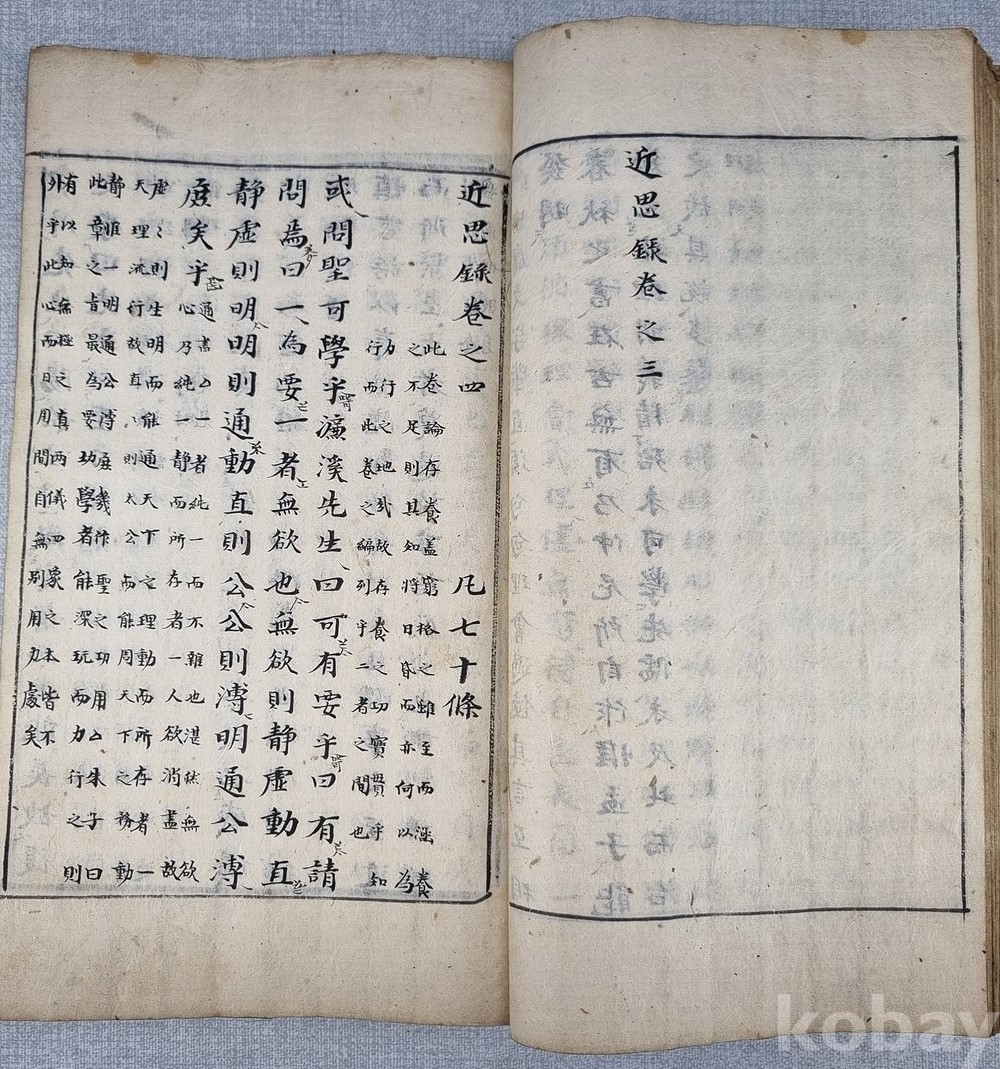 近思錄卷之三
近思錄卷之四 凡七十條
此卷論存養盖窮格之雖至而涵養
之不足則其知將日昏而亦何以為
力行之地㢤故存養之功實貫乎知
行而此卷之編列乎二者之間也
或問聖可學乎濂溪先生曰可有要乎曰有請
問焉曰一為要一者無欲也無欲則静虛動直
静虛則明明則通動直則公公則溥明通公溥
庶矣乎
通書△一者純一而不雜也湛然無欲
心乃純一静而所存者一人欲消盡故
虛〻則生明而能通天下之理動而所存者一
天理流行故直〻則太公而能周天下之務動
静惟一明通公溥庶幾作聖之功用△朱子曰
此章之旨最為要功學者能深玩而力行之則
有以知無極之真兩儀四象之本皆不
外乎此心而日用間自無別用力處矣
kobay